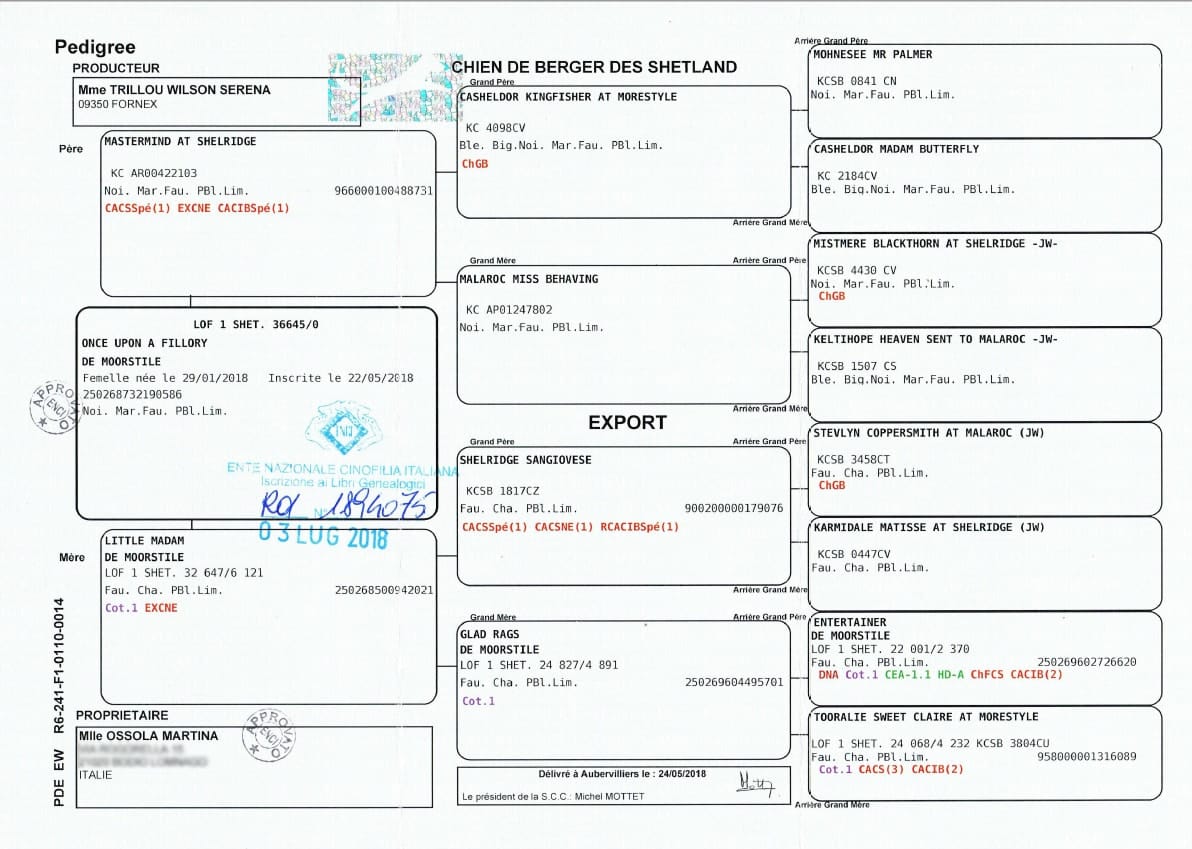 Pedigree
PRODUCTEUR
Mme TRILLOU WILSON SERENA
09350 FORNEX
CHIEN DE BERGER DES SHETLAND
Père
MASTERMIND AT SHELRIDGE
KC AR00422103
Noi. Mar.Fau. PBl.Lim. 966000100488731
CACSSpé(1) EXCNE CACIBSpé(1)
LOF 1 SHET. 36645/0
ONCE UPON A FILLORY
DE MOORSTILE
Femelle née le 29/01/2018 Inscrite le 22/05/2018
250268732190586
Noi. Mar.Fau. PBl.Lim.
APPROVATO
ENCI
ENTE NAZIONALE CINOFILIA ITALIANA
Iscrizione ai Libri Genealogici
ROI N° 1894075
03 LUG 2018
Mère
LITTLE MADAM
DE MOORSTILE
LOF 1 SHET. 32 647/6 121
Fau. Cha. PBl.Lim. 250268500942021
Cot.1 EXCNE
PROPRIETAIRE
Mlle OSSOLA MARTINA
ITALIE
APPROVATO
ENCI
PDE EW R6-241-F1-0110-0014
Grand Père
CASHELDOR KINGFISHER AT MORESTYLE
KC 4098CV
Ble. Big.Noi. Mar.Fau. PBl.Lim.
ChGB
Grand Mère
MALAROC MISS BEHAVING
KC AP01247802
Noi. Mar.Fau. PBl.Lim.
EXPORT
Grand Père
SHELRIDGE SANGIOVESE
KCSB 1817CZ
Fau. Cha. PBl.Lim. 900200000179076
CACSSpé(1) CACSNE(1) RCACIBSpé(1)
Grand Mère
GLAD RAGS
DE MOORSTILE
LOF 1 SHET. 24 827/4 891
Fau. Cha. PBl.Lim. 250269604495701
Cot.1
Délivré à Aubervilliers le : 24/05/2018
Le président de la S.C.C.: Michel MOTTET
Arrière Grand Père
MOHNESEE MR PALMER
KCSB 0841 CN
Noi. Mar.Fau. PBl.Lim.
CASHELDOR MADAM BUTTERFLY
KC 2184CV
Ble. Big.Noi. Mar.Fau. PBl.Lim.
Arrière Grand Mère
Arrière Grand Père
MISTMERE BLACKTHORN AT SHELRIDGE -JW-
KCSB 4430 CV
Noi. Mar.Fau. PBl.Lim.
ChGB
KELTIHOPE HEAVEN SENT TO MALAROC -JW-
KCSB 1507 CS
Ble. Big.Noi. Mar.Fau. PBl.Lim.
Arrière Grand Mère
Arrière Grand Père
STEVLYN COPPERSMITH AT MALAROC (JW)
KCSB 3458CT
Fau. Cha. PBl.Lim.
ChGB
KARMIDALE MATISSE AT SHELRIDGE (JW)
KCSB 0447CV
Fau. Cha. PBl.Lim.
Arrière Grand Mère
Arrière Grand Père
ENTERTAINER
DE MOORSTILE
LOF 1 SHET. 22 001/2 370
Fau. Cha. PBl.Lim. 250269602726620
DNA Cot.1 CEA-1.1 HD-A ChFCS CACIB(2)
TOORALIE SWEET CLAIRE AT MORESTYLE
LOF 1 SHET. 24 068/4 232 KCSB 3804CU
Fau. Cha. PBl.Lim. 958000001316089
Cot.1 CACS(3) CACIB(2)
Arrière Grand Mère